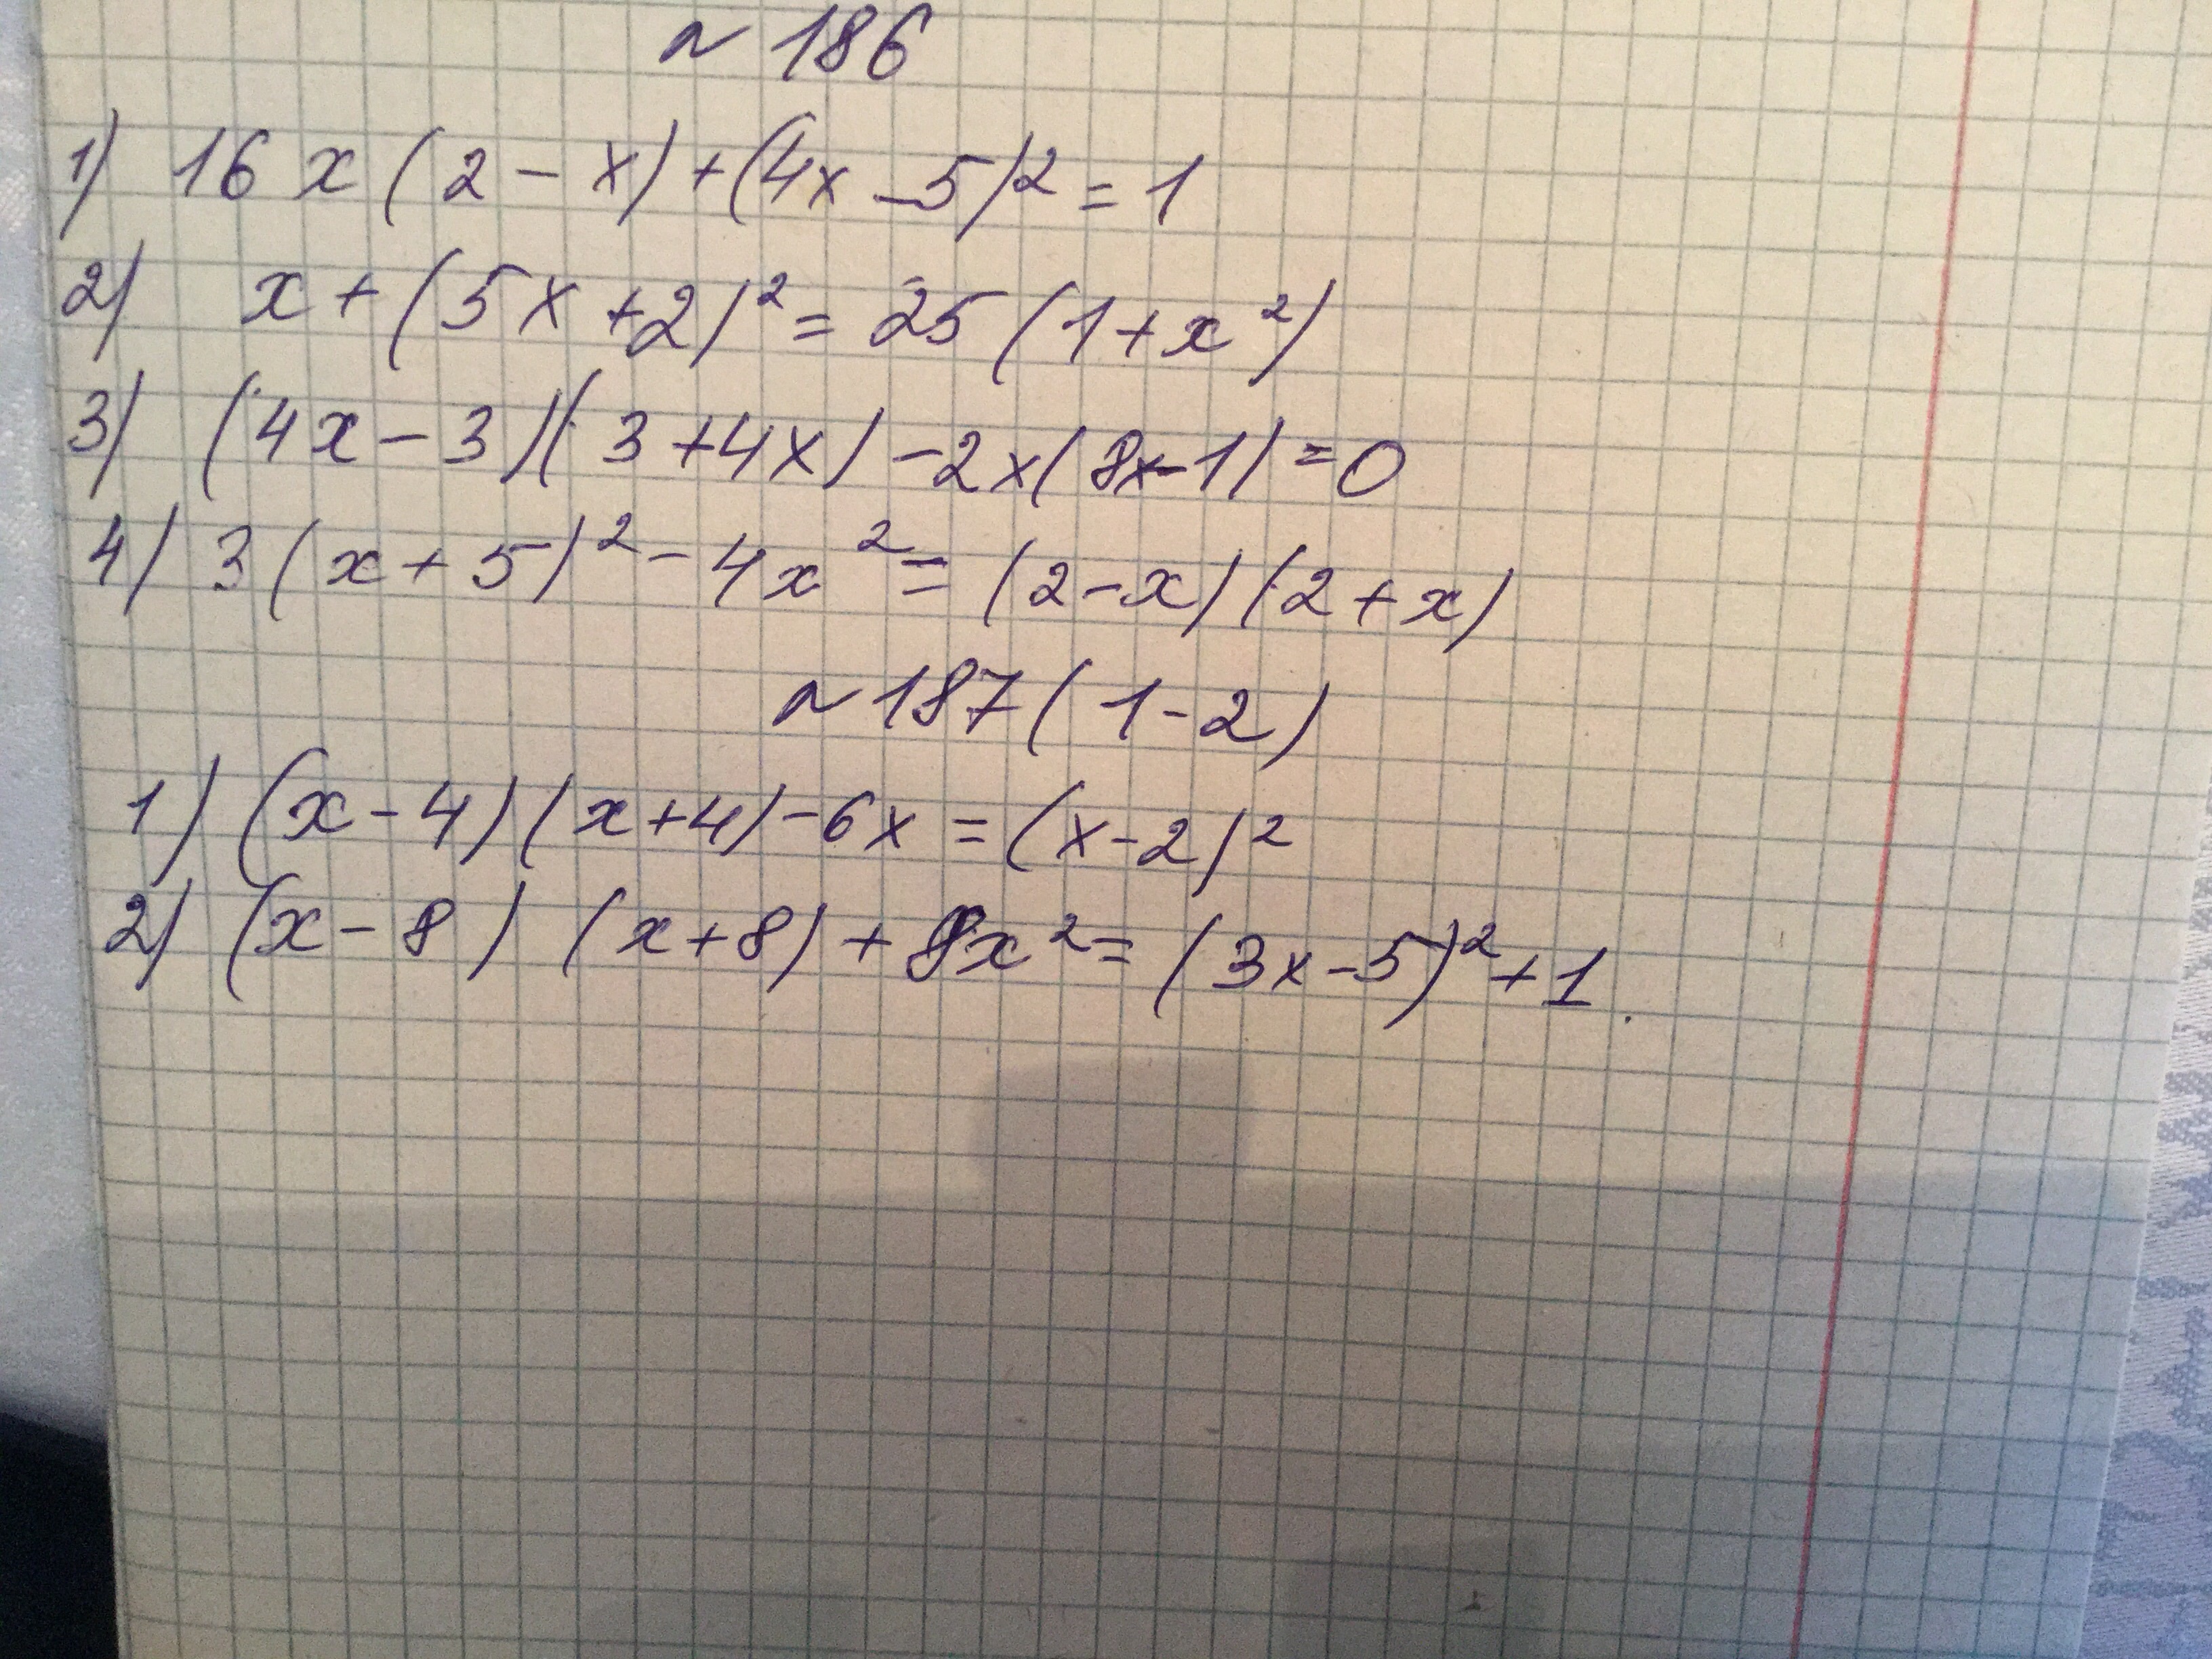 № 186
1) 16x(2-x)+(4x-5)²=1
2) x+(5x+2)²=25(1+x²)
3) (4x-3)(3+4x)-2x(8x-1)=0
4) 3(x+5)²-4x²=(2-x)(2+x)
№ 187(1-2)
1) (x-4)(x+4)-6x=(x-2)²
2) (x-8)(x+8)+8x²=(3x-5)²+1.